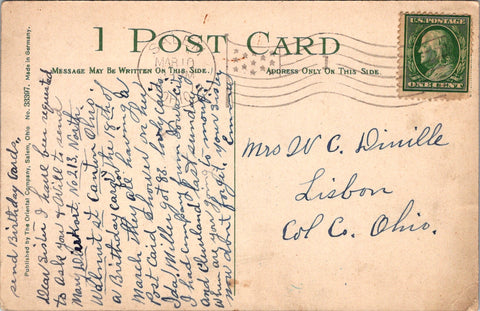 1 POST CARD
MESSAGE MAY BE WRITTEN ON THIS SIDE.
ADDRESS ONLY ON THIS SIDE.
U.S. POSTAGE
ONE CENT
MAR 10
Published by The Oriental Company, Salem, Ohio No. 33397. Made in Germany.
send Birthday Cards.
Dear Sister I have been requested
to ask you & Will to send
Mary No 213, North
Walnut st Canton Ohio
a Birthday card on the 18th of
March they are having a
Post card Shower for her
Ida Miller got 88. lovely cards
I had company from
and Cleveland last sunday
when are you going to
now don't forget. your sister
Mrs W C Dinille
Lisbon
Col Co. Ohio.